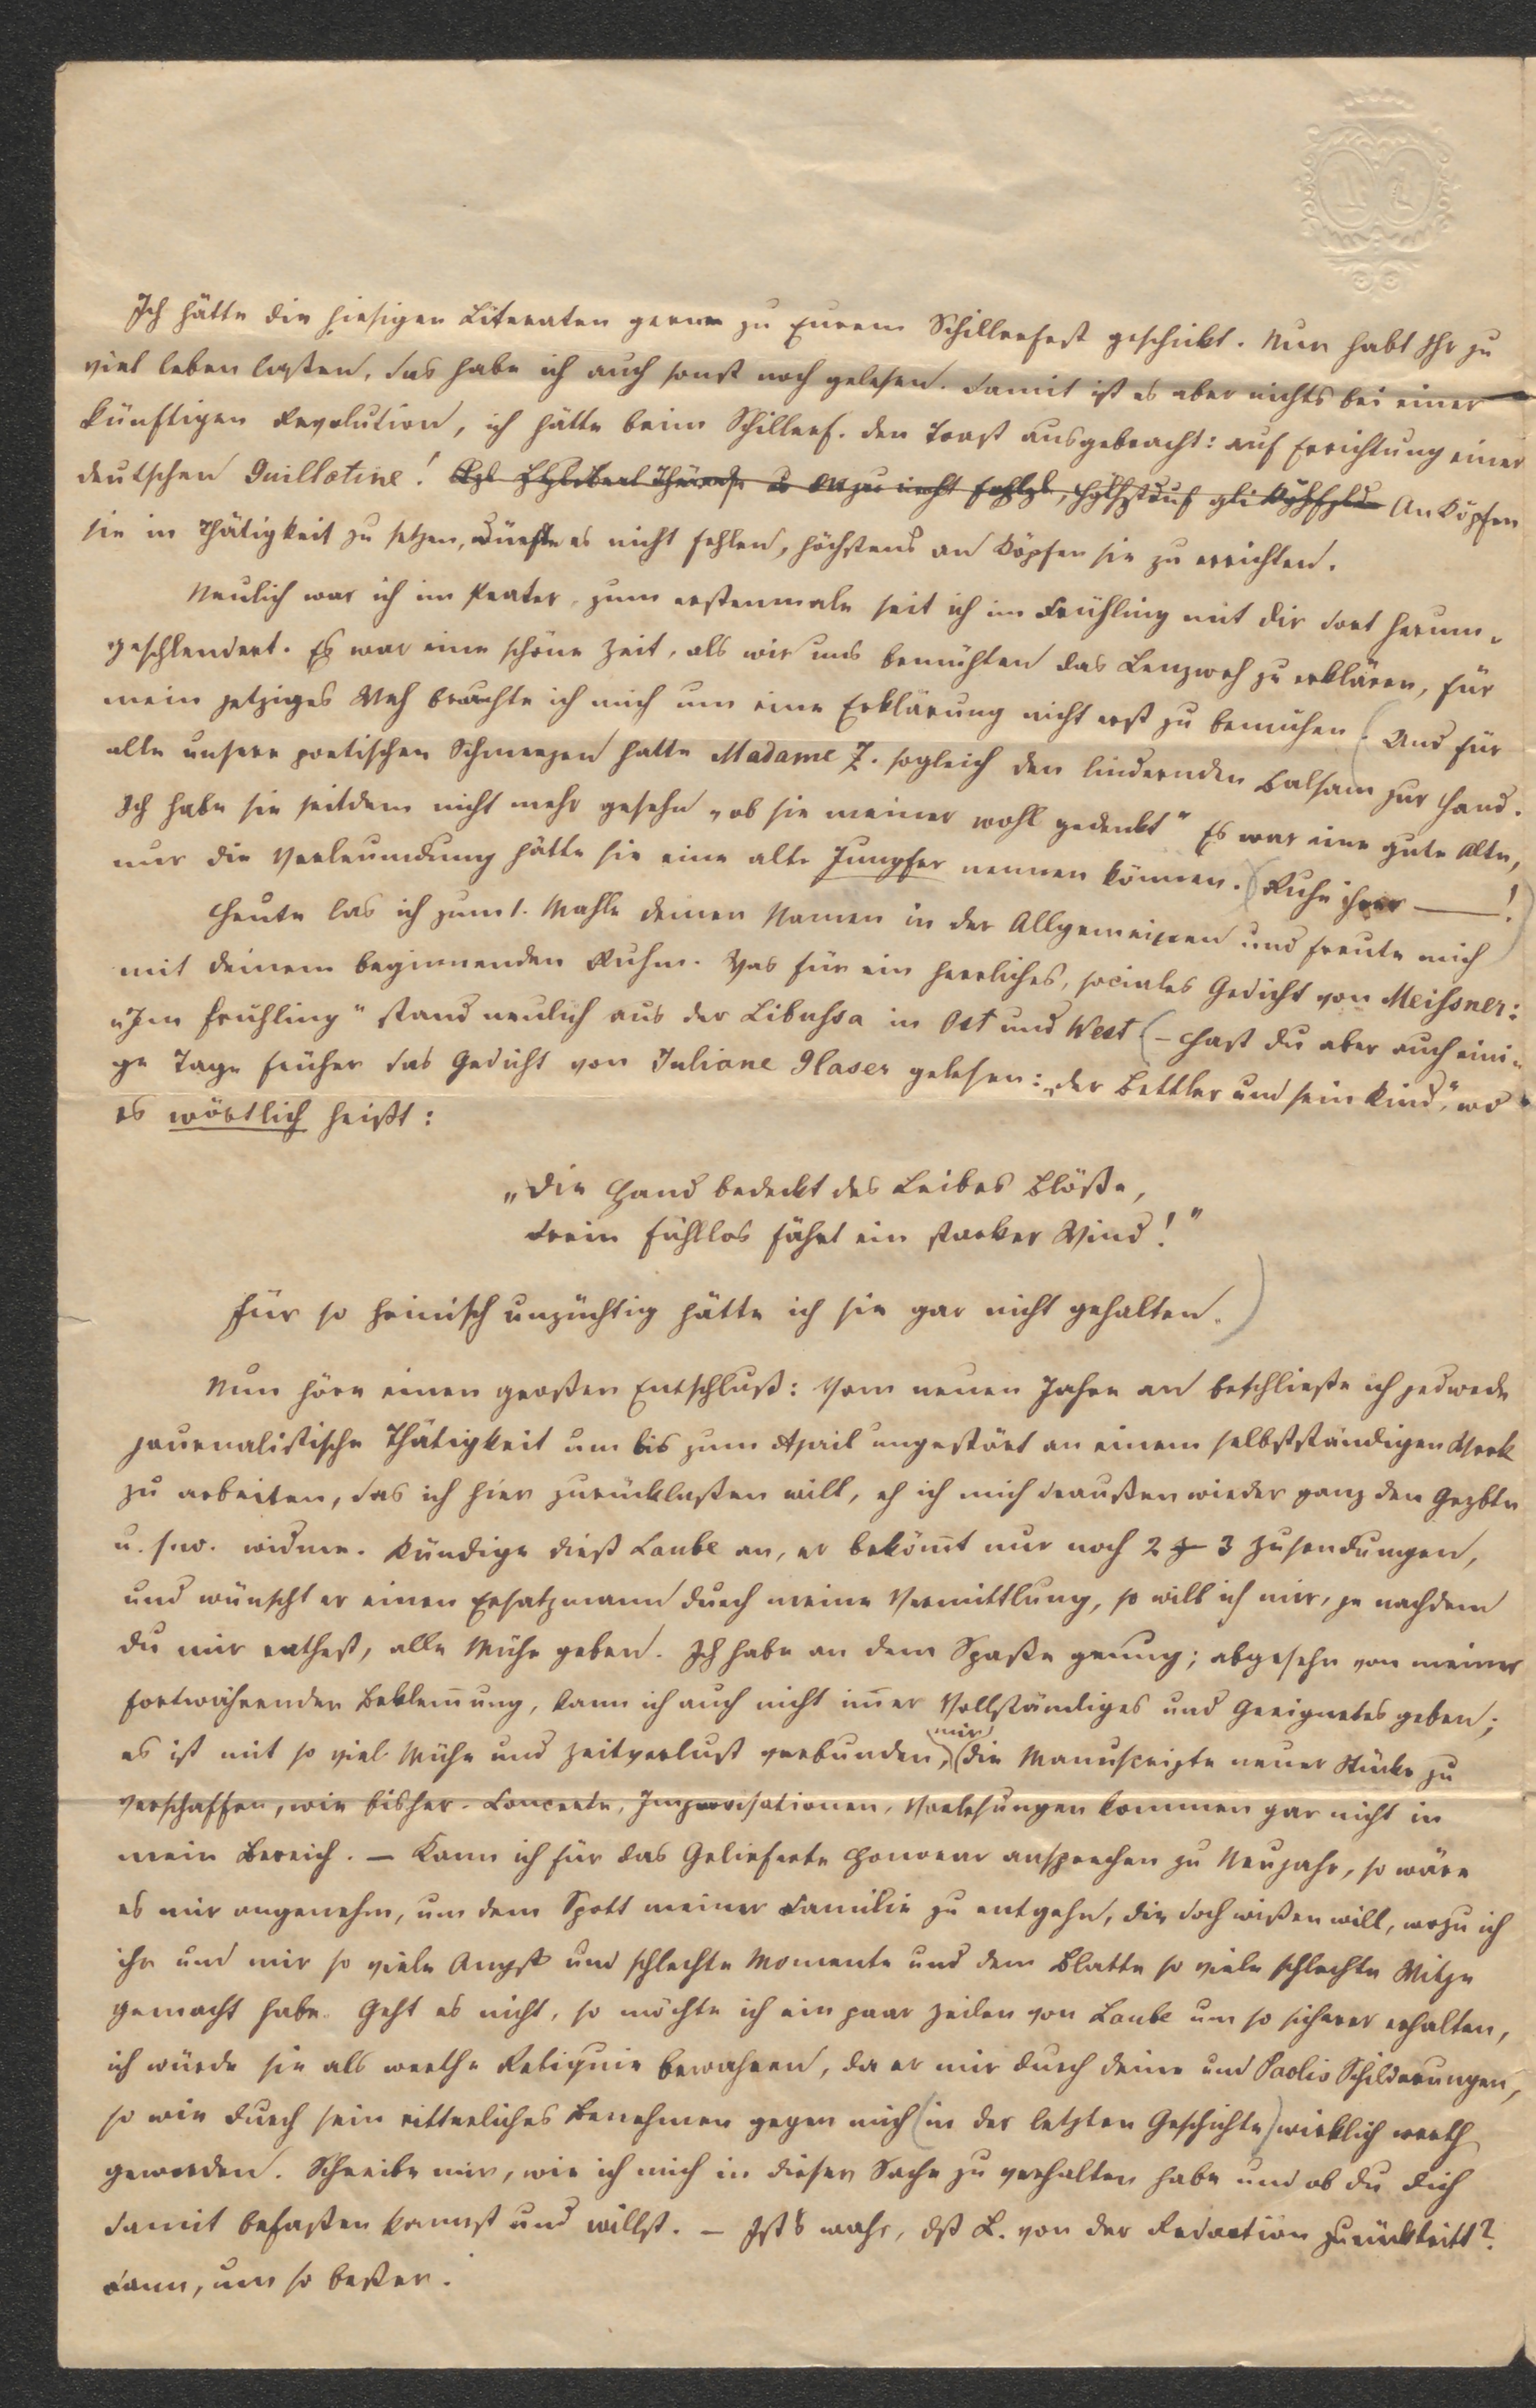 Ich hätte die hiesigen Literaten gerne zu Eurem Schillerfest geschickt. Nun habt Ihr zu
viel leben laßen, das habe ich auch sonst noch gelesen. Damit ist es aber nichts bei einer
künftigen Revolution, ich hätte beim Schillerf. den Toast ausgebracht: auf Errichtung einer
deutschen Guillotine! An Köpfen
sie in Thätigkeit zu setzen, dürfte es nicht fehlen, höchstens an Köpfen sie zu errichten.
Neulich war ich im Prater, zum erstenmale seit ich im Frühling mit dir dort herum-
geschlendert. Es war eine schöne Zeit, als wir uns bemühten das Lenzweh zu erklären, für
mein jetziges Weh brauchte ich mich um eine Erklärung nicht erst zu bemühen. (Und für
alle unsere poetischen Schmerzen hatte Madame Z. sogleich den lindernden Balsam zur Hand.
Ich habe sie seitdem nicht mehr gesehn „ob sie meiner wohl gedenkt“ Es war eine gute Alte,
nur die Verleumdung hätte sie eine alte Jungfer nennen können. (Ruhe ihrer —!)
Heute las ich zum 1. Mahle deinen Namen in der Allgemeinen und freute mich
mit deinem beginnenden Ruhm. Was für ein herrliches, sociales Gedicht von Meißner:
„Im Frühling“ stand neulich aus der Libussa in Ost und West (– Hast du aber auch eini-
ge Tage früher das Gedicht von Juliane Glaser gelesen: „der Bettler und sein Kind“, wo
es wörtlich heißt:
„Die Hand bedeckt des Leibes Blöße,
Drein fühllos fährt ein starker Wind!“
Für so heinisch unzüchtig hätte ich sie gar nicht gehalten.)
Nun höre einen großen Entschluß: Vom neuen Jahre an beschließe ich jedwede
journalistische Thätigkeit um bis zum April ungestört an einem selbstständigen Werk
zu arbeiten, das ich hier zurücklaßen will, eh ich mich draußen wieder ganz den
u. s. w. widme. Kündige dieß Laube an, er bekömt nur noch 2 – 3 Zusendungen,
und wünscht er einen Ersatzmann durch meine Vermittlung, so will ich mir, je nachdem
du mir rathest, alle Mühe geben. Ich habe an dem Spaße genug; abgesehn von meiner
fortwährenden Beklemung, kann ich auch nicht imer Vollständiges und Geeignetes geben;
es ist mit so viel Mühe und Zeitverlust verbunden, mir die Manuscripte neuer Stücke zu
verschaffen, wie bisher. Concerte, Improvisationen, Vorlesungen kommen gar nicht in
mein Bereich. – Kann ich für das Gelieferte Honorar ansprechen zu Neujahr, so wäre
es mir angenehm, um dem Spott meiner Familie zu entgehn, die doch wißen will, wozu ich
ihr und mir so viele Angst und schlechte Momente und dem Blatte so viele schlechte Witze
gemacht habe. Geht es nicht, so möchte ich ein paar Zeilen von Laube um so sicherer erhalten,
ich würde sie als werthe Reliquie bewahren, da er mir durch deine und Paolis Schilderungen,
so wie durch sein ritterliches Benehmen gegen mich (in der letzten Geschichte) wirklich werth
geworden. Schreibe mir, wie ich mich in dieser Sache zu verhalten habe und ob du dich
damit befaßen kannst und willst. – Ist's wahr, dß L. von der Redaction zurücktritt?
Dann, um so beßer.